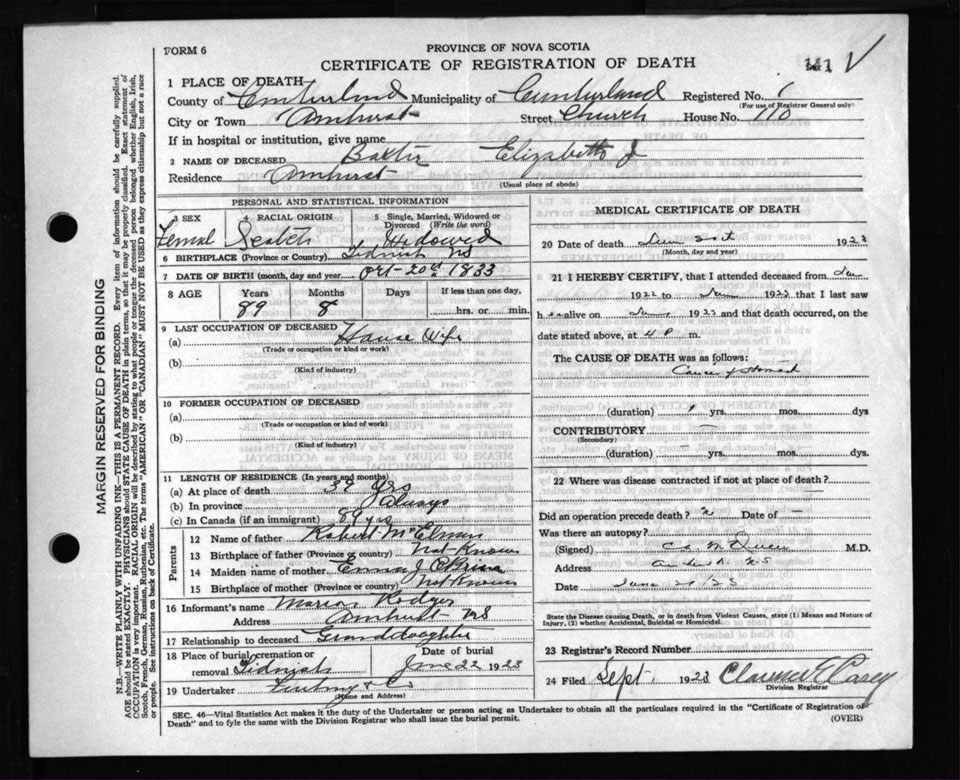 FORM 6
PROVINCE OF NOVA SCOTIA
CERTIFICATE OF REGISTRATION OF DEATH
141 V
1 PLACE OF DEATH
County of Cumberland Municipality of Cumberland Registered No. 1
(For use of Registrar General only)
City or Town Amherst Street, Church House No. 110
If in hospital or institution, give name
2 NAME OF DECEASED Baxter Elizabeth J
Residence Amherst
(Usual place of abode)
PERSONAL AND STATISTICAL INFORMATION
3 SEX Femal
4 RACIAL ORIGIN Scotch
5 Single, Married, Widowed or Divorced (Write the word) Widowed
6 BIRTHPLACE (Province or Country) Tidnish NS
7 DATE OF BIRTH (month, day and year) Oct-20th 1833
8 AGE Years 89 Months 8 Days If less than one day, hrs. or min.
9 LAST OCCUPATION OF DECEASED
(a) House Wife
(Trade or occupation or kind or work)
(b)
(Kind of industry)
10 FORMER OCCUPATION OF DECEASED
(a)
(Trade or occupation or kind of work)
(b)
(Kind of industry)
11 LENGTH OF RESIDENCE (In years and months)
(a) At place of death yrs
(b) In province Always
(c) In Canada (if an immigrant) 89 yrs
Parents
12 Name of father Robert
13 Birthplace of father (Province or country) Not Known
14 Maiden name of mother Emma J O'Brien
15 Birthplace of mother (Province or country) Not Known
16 Informant's name Rodger
Address Amherst NS
17 Relationship to deceased Granddaughter
18 Place of burial, cremation or removal Tidnish
Date of burial June 22 1923
19 Undertaker & Co
(Name and Address)
MEDICAL CERTIFICATE OF DEATH
20 Date of death 192
(Month, day and year)
21 I HEREBY CERTIFY, that I attended deceased from
1922 to 1922 that I last saw
h alive on 192 and that death occurred, on
date stated above, at 4 P m.
The CAUSE OF DEATH was as follows:
Cancer of Stomach
(duration) 1 yrs. mos. dys
CONTRIBUTORY —
(Secondary)
(duration) — yrs. mos. dys.
22 Where was disease contracted if not at place of death? —
Did an operation precede death? Date of —
Was there an autopsy?
(Signed) M.D.
Address
Date June
State the Disease causing Death, or in death from Violent Causes, state (1) Means and Nature of Injury, (2) whether Accidental, Suicidal or Homicidal.
23 Registrar's Record Number
24 Filed Sept. 1923 Clarence E Casey
Division Registrar
SEC. 46—Vital Statistics Act makes it the duty of the Undertaker or person acting as Undertaker to obtain all the particulars required in the "Certificate of Registration of
Death" and to fyle the same with the Division Registrar who shall issue the burial permit.
(OVER)
MARGIN RESERVED FOR BINDING
N.B.—WRITE PLAINLY WITH UNFADING INK—THIS IS A PERMANENT RECORD. Every item of information should be carefully supplied.
AGE should be stated EXACTLY. PHYSICIANS should STATE CAUSE OF DEATH in plain terms, so that it may be properly classified. Exact statement of
OCCUPATION is very important. RACIAL ORIGIN will be described by stating to what people or tongue the deceased person belonged whether English, Irish,
Scotch, French, German, Russian, Ruthenian, etc. The terms "AMERICAN" OR "CANADIAN" MUST NOT BE USED as they express citizenship but not a race
or people. See instructions on back of Certificate.